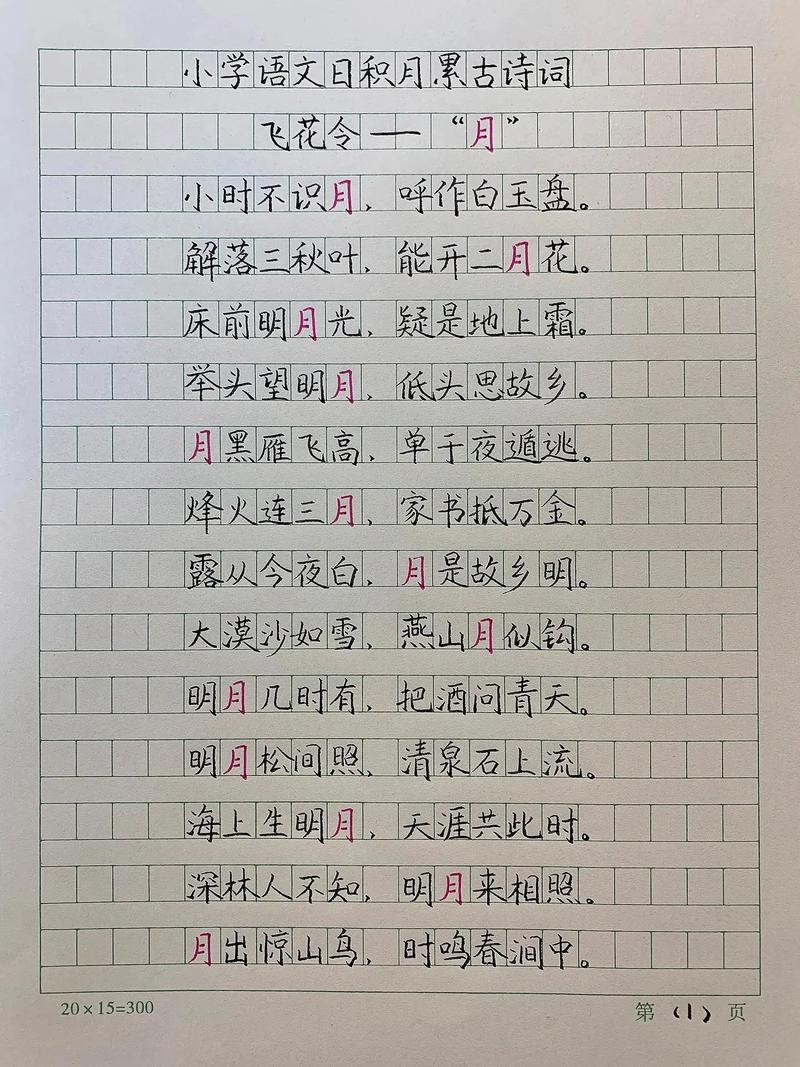 小学语文日积月累古诗词
飞花令——“月”
小时不识月，呼作白玉盘。
解落三秋叶，能开二月花。
床前明月光，疑是地上霜。
举头望明月，低头思故乡。
月黑雁飞高，单于夜遁逃。
烽火连三月，家书抵万金。
露从今夜白，月是故乡明。
大漠沙如雪，燕山月似钩。
明月几时有，把酒问青天。
明月松间照，清泉石上流。
海上生明月，天涯共此时。
深林人不知，明月来相照。
月出惊山鸟，时鸣春涧中。
20×15=300 第（1）页